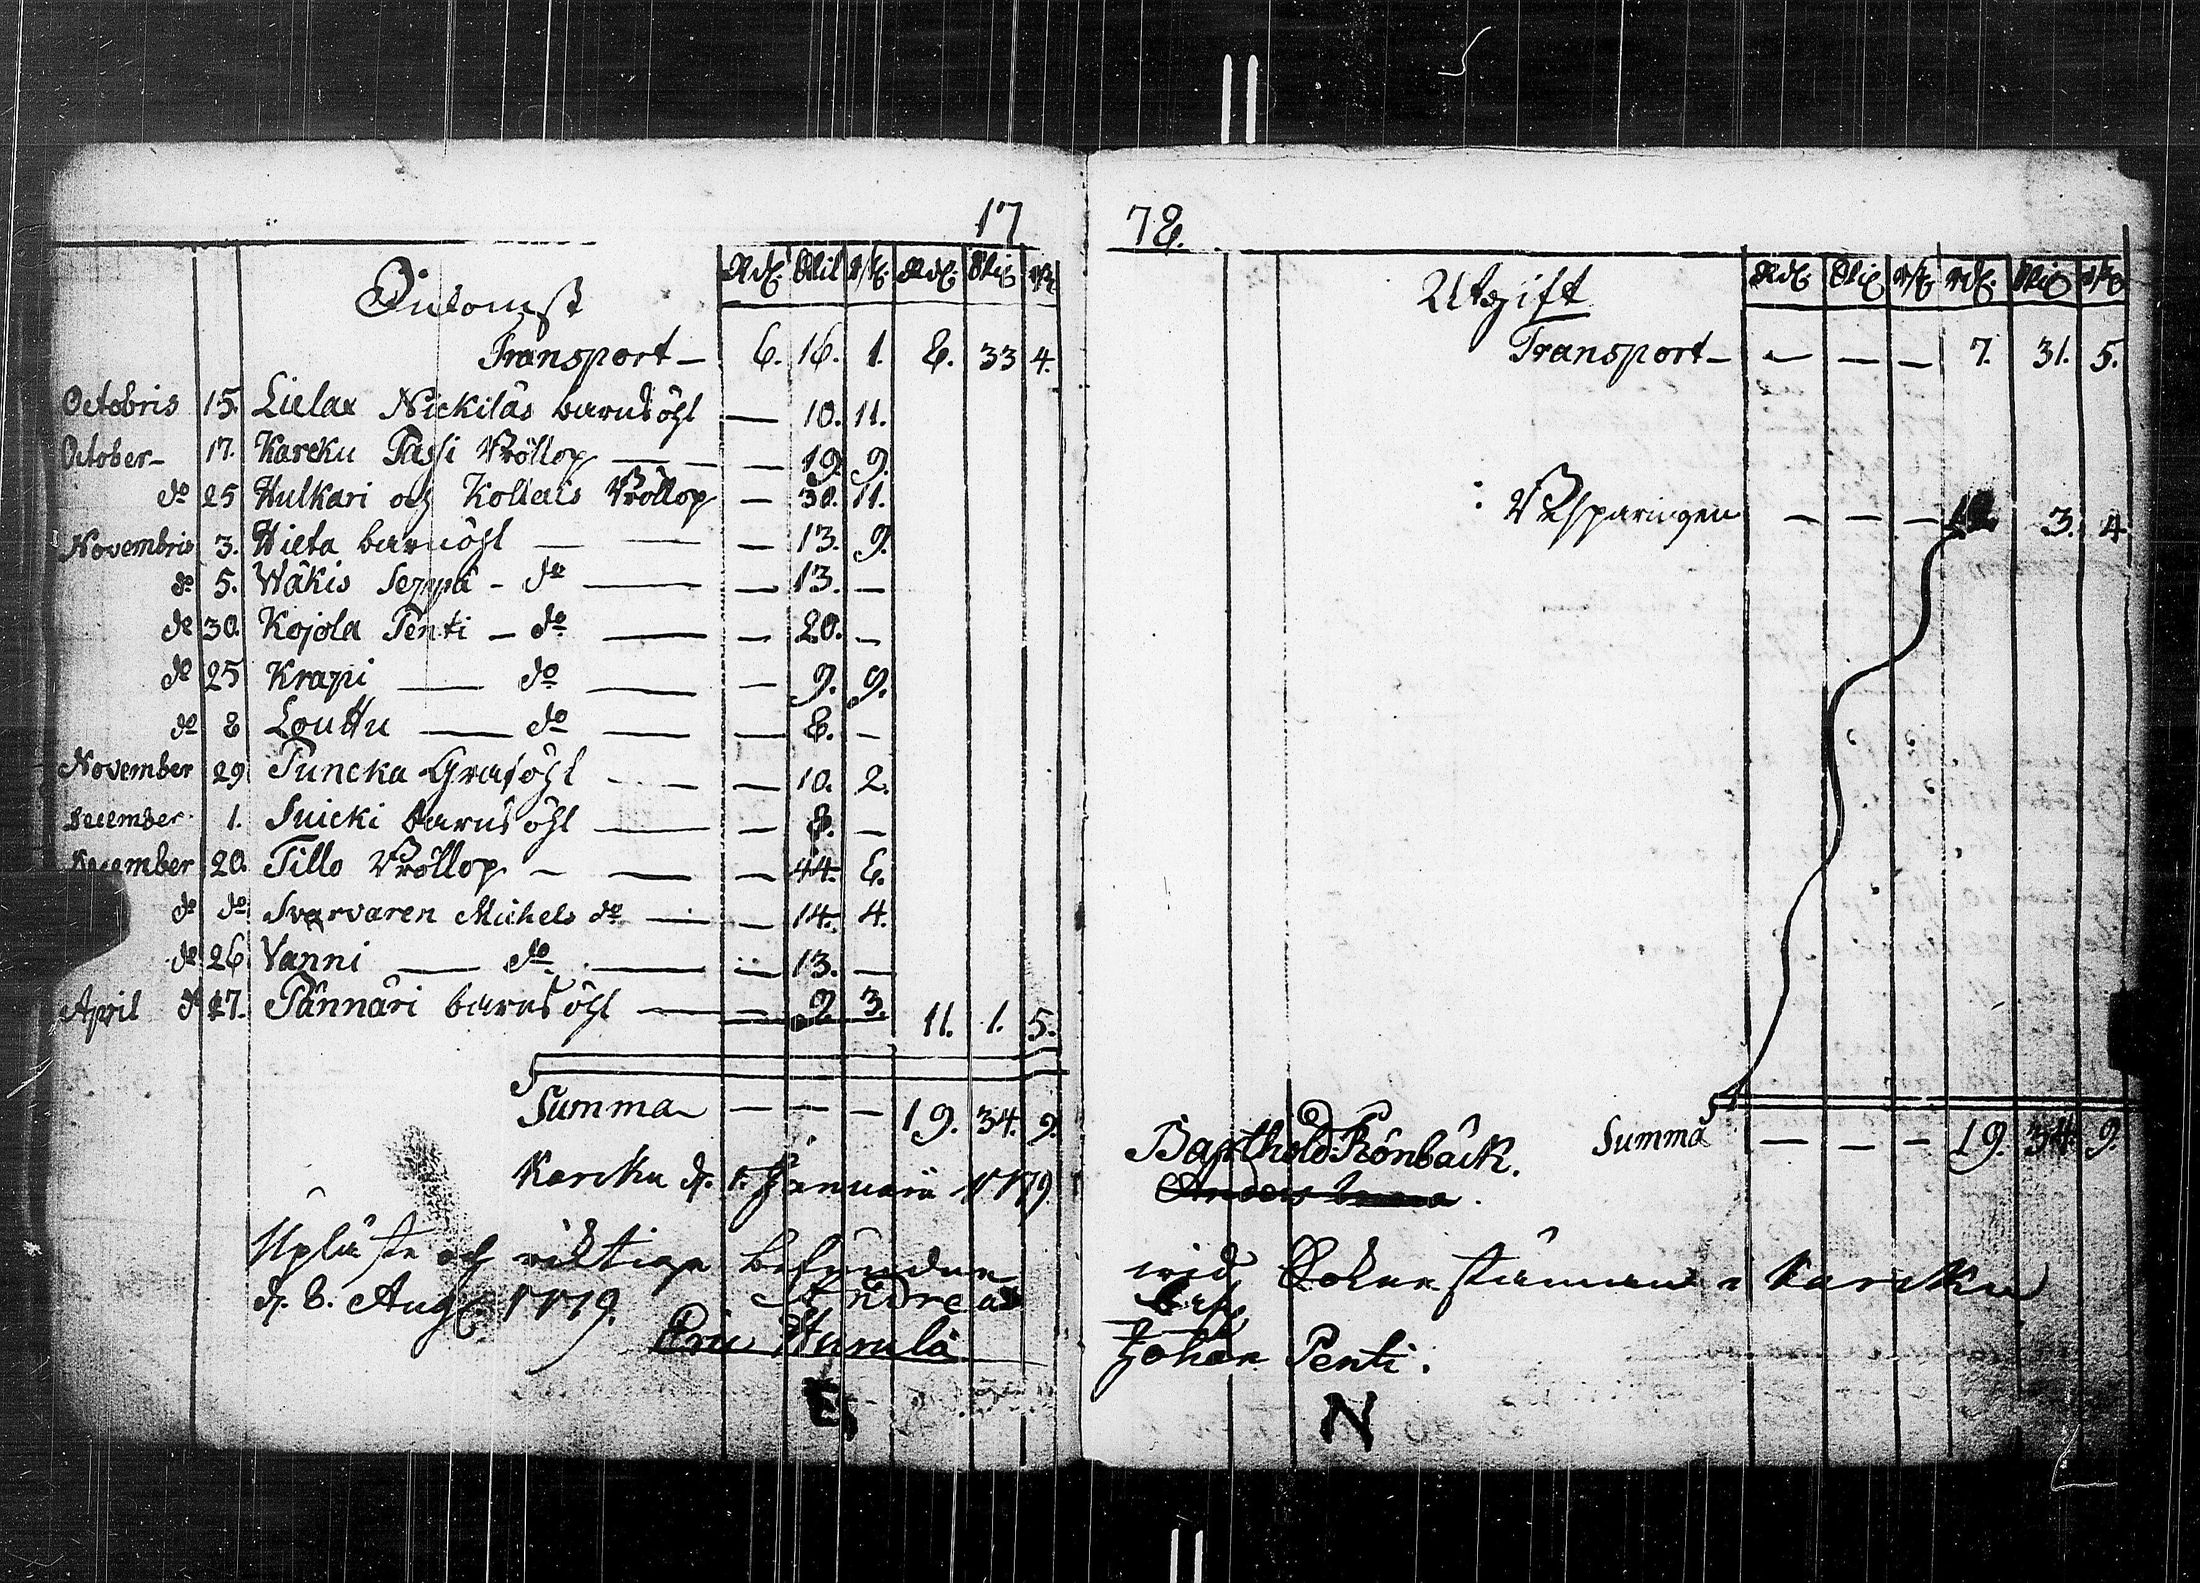 17
Rd. Skil r/s. Rd. Skil r/s
Inkomst
Transport — 6. 16. 1. 8. 33 4.
Octobris 15. Lielax Nickiläs barns öhl — 10. 11.
October — 17. Karcku Passi Bröllop — — 19. 9.
do 25 Hulkari och Kollais Bröllop — 30. 11.
Novembris 3. Hieta barnöhl — — — 13. 9.
do 5. Wäkis Seppä — do — — 13. —
do 30. Kojola Penti — do — — 20. —
do 25 Krapi — do — — 9. 9.
do 8 Louttu — do — — 8. —
November 29 Puncka Graföhl — — — 10. 2.
December 1. Suicki barns öhl — — 8. —
December 20. Tillo Bröllop — — — 44. 6.
do do Svarvaren Michels do — — 14. 4.
do 26 Vanni — do — — 13. —
April 17. Pännäri barns öhl — — 2 3. 11. 1. 5.
Summa — — — 19. 34. 9.
Karcku d. 1. Januarii 1779
Upläste och riktiga befundne
d. 8. Aug 1779. Andreas
Eric Hurula
E
78.
Rd. Skil r/s rd. Skil r/s
Utgift
Transport — — — — 7. 31. 5.
Besparingen — — — 12. 3. 4
Summa — — — 19. 34. 9.
Barthold Rönbäck.
wid Sokne stämman i Karcku
Johan Penti.
N